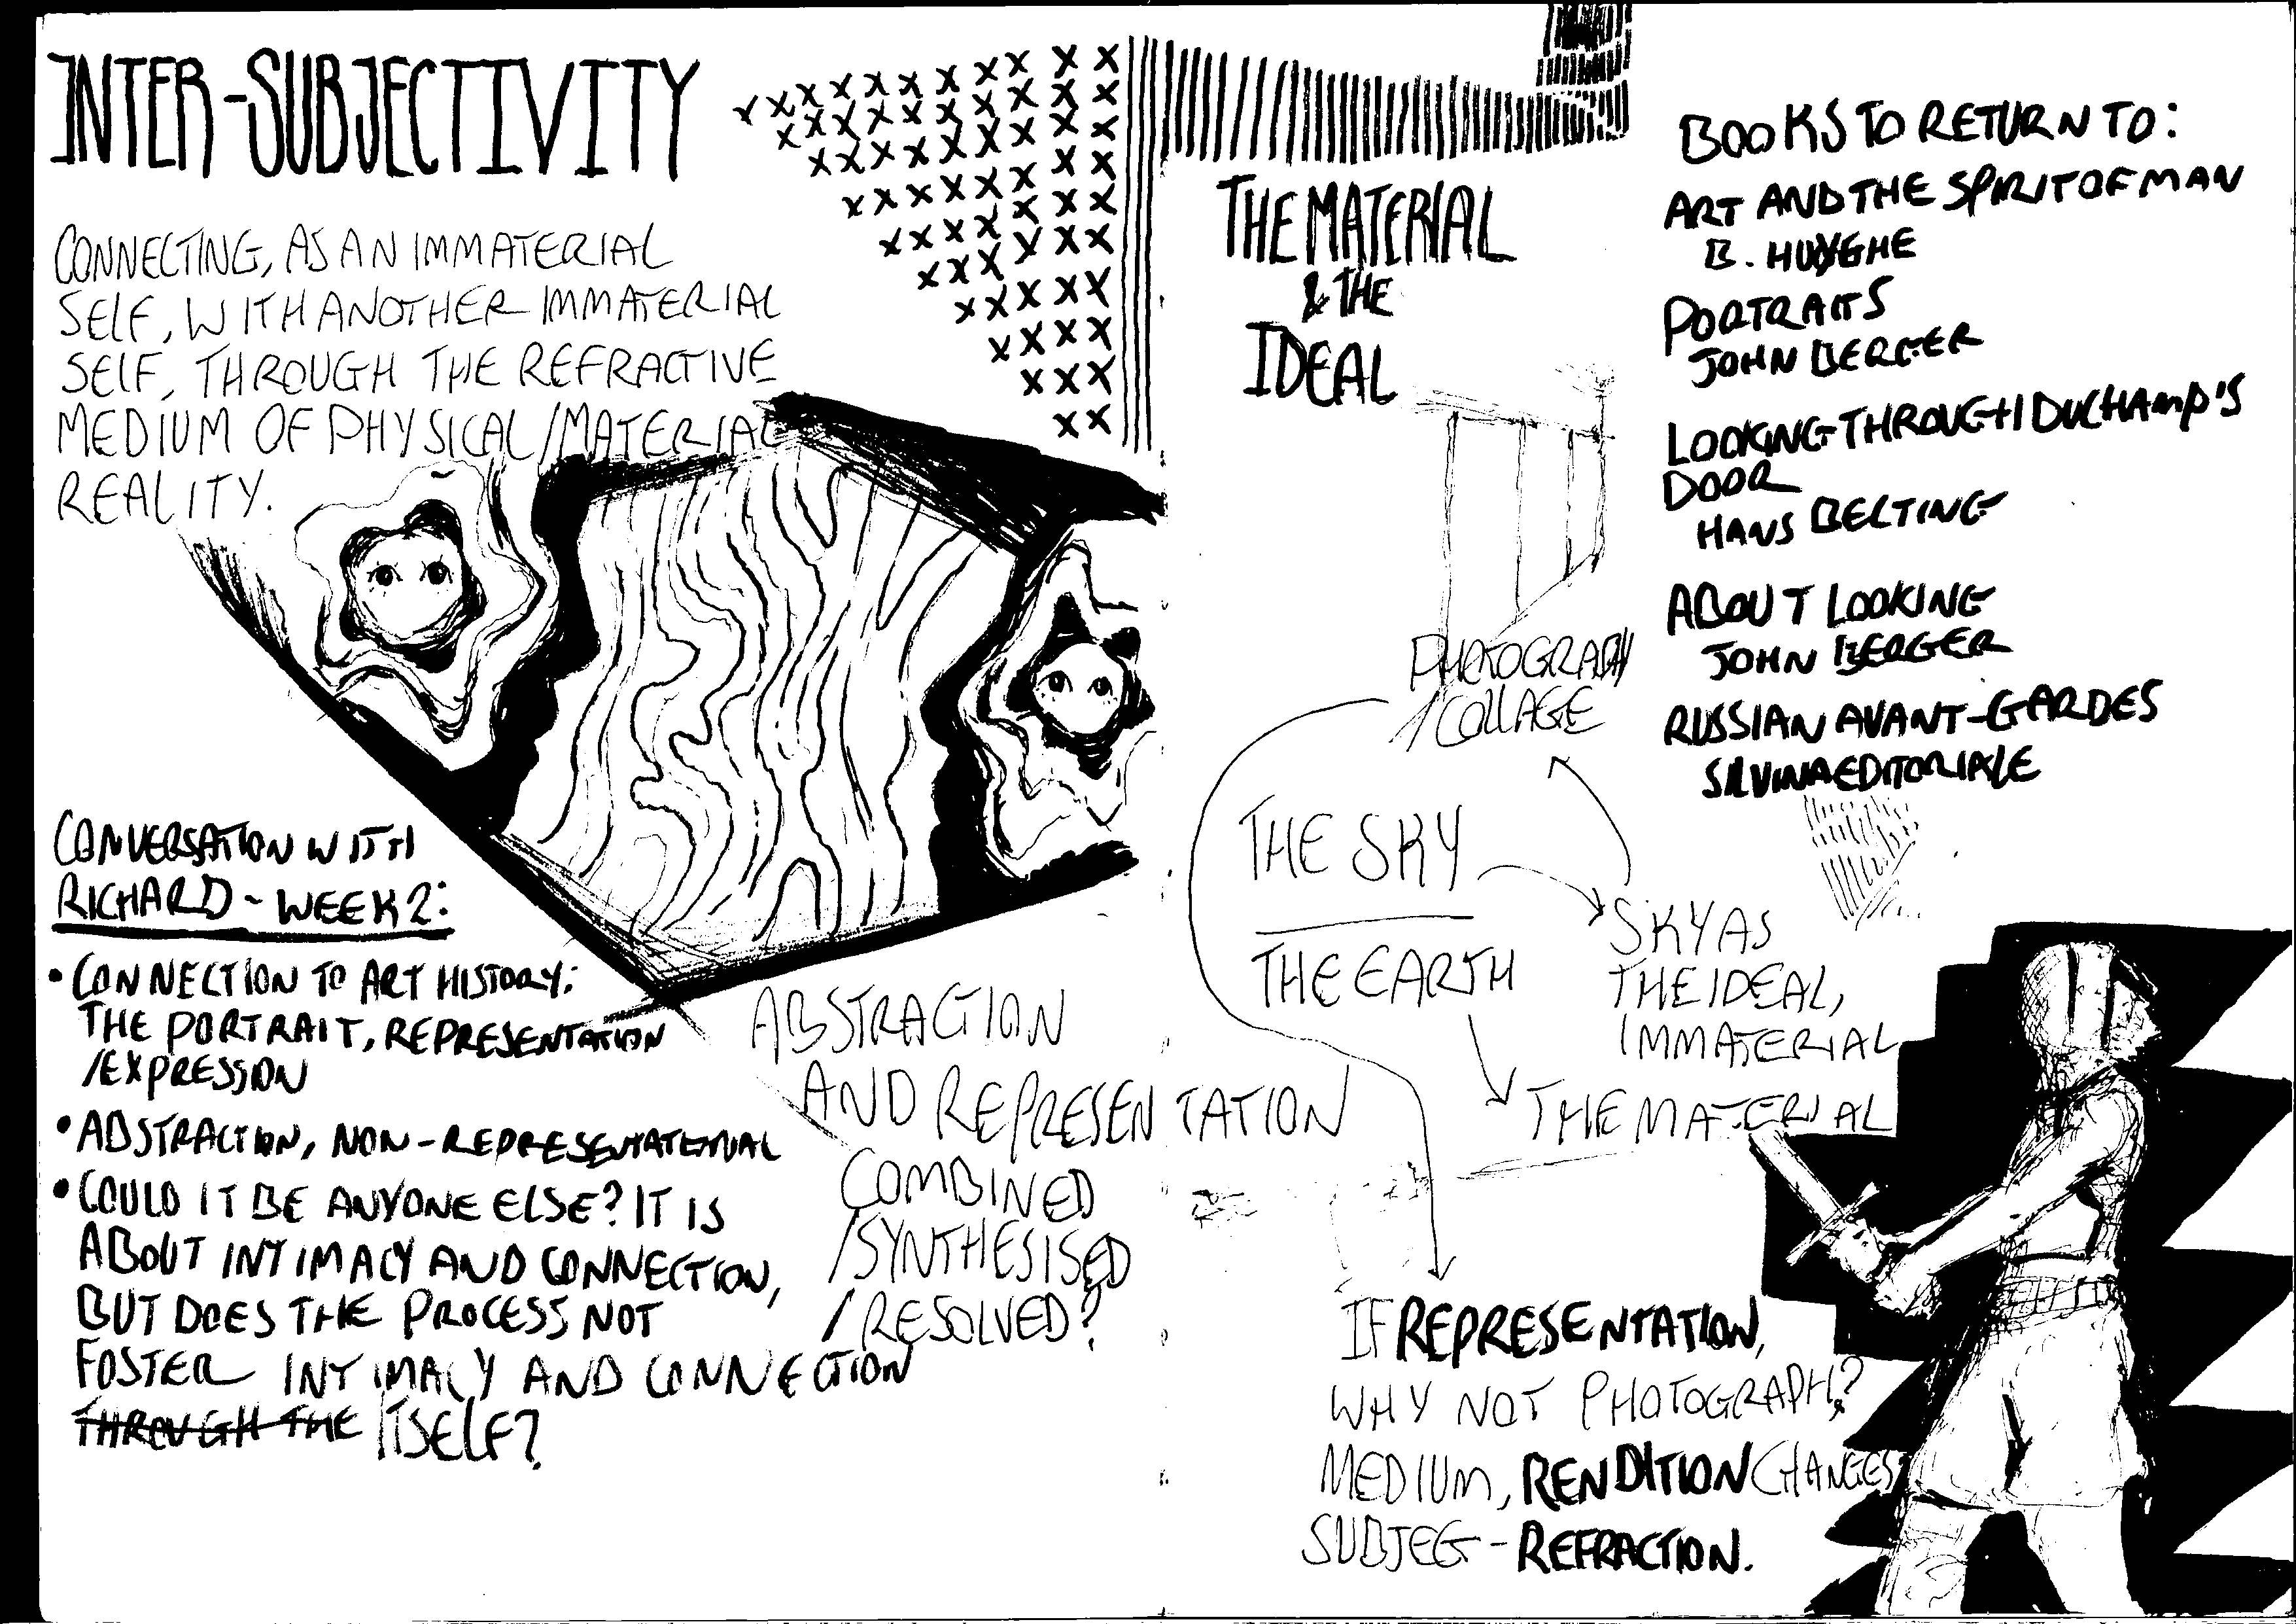 INTER-SUBJECTIVITY
CONNECTING, AS AN IMMATERIAL
SELF, WITH ANOTHER IMMATERIAL
SELF, THROUGH THE REFRACTIVE
MEDIUM OF PHYSICAL/MATERIAL
REALITY.
CONVERSATION WITH
RICHARD - WEEK 2:
• CONNECTION TO ART HISTORY:
THE PORTRAIT, REPRESENTATION
/EXPRESSION
• ABSTRACTION, NON-REPRESENTATIONAL
• COULD IT BE ANYONE ELSE? IT IS
ABOUT INTIMACY AND CONNECTION,
BUT DOES THE PROCESS NOT
FOSTER INTIMACY AND CONNECTION
THROUGH THE ITSELF?
ABSTRACTION
AND REPRESENTATION
COMBINED
/SYNTHESISED
/RESOLVED?
THE MATERIAL
& THE
IDEAL
PHOTOGRAPH
/COLLAGE
THE SKY
THE EARTH
SKY AS
THE IDEAL,
IMMATERIAL
THE MATERIAL
IF REPRESENTATION,
WHY NOT PHOTOGRAPH?
MEDIUM, RENDITION CHANGES
SUBJECT - REFRACTION.
BOOKS TO RETURN TO:
ART AND THE SPIRIT OF MAN
HUYGHE
PORTRAITS
JOHN BERGER
LOOKING THROUGH DUCHAMP'S
DOOR
HANS BELTING
ABOUT LOOKING
JOHN BERGER
RUSSIAN AVANT-GARDES
SILVINAEDITORIALE